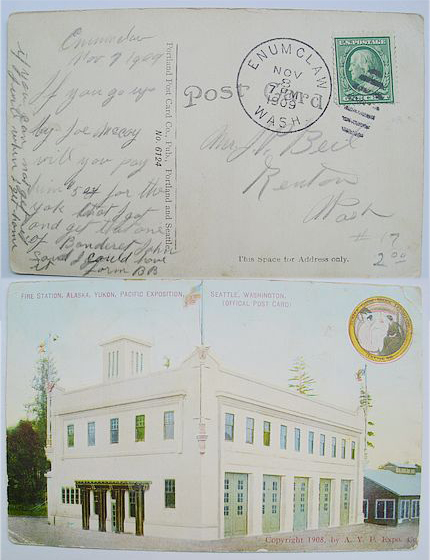 Enumclaw
Nov 9 1909
If you go up
by Joe McCoy
will you pay
him 50¢ for the
yok that I got
and get that one
of
said I could have
it
Portland Post Card Co., Pub., Portland and Seattle
No. 6124
Post Card
ENUMCLAW
NOV
8
7 PM
1909
WASH.
U.S. POSTAGE
Mr J.P.
Renton
Wash
# 17
2.00
This Space for Address only.
FIRE STATION, ALASKA, YUKON, PACIFIC EXPOSITION, SEATTLE, WASHINGTON,
(OFFICIAL POST CARD)
Copyright 1908, by A. Y. P. Expo. Co.